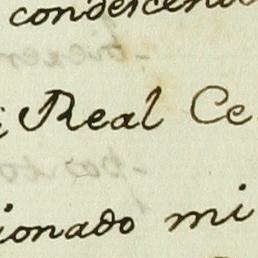 condescend
Real Ce
ionado mi